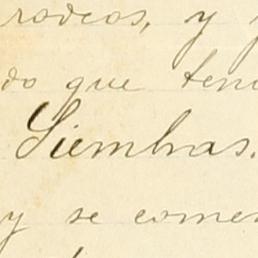 rodeos, y
do que ten
Siembras.
y se comen